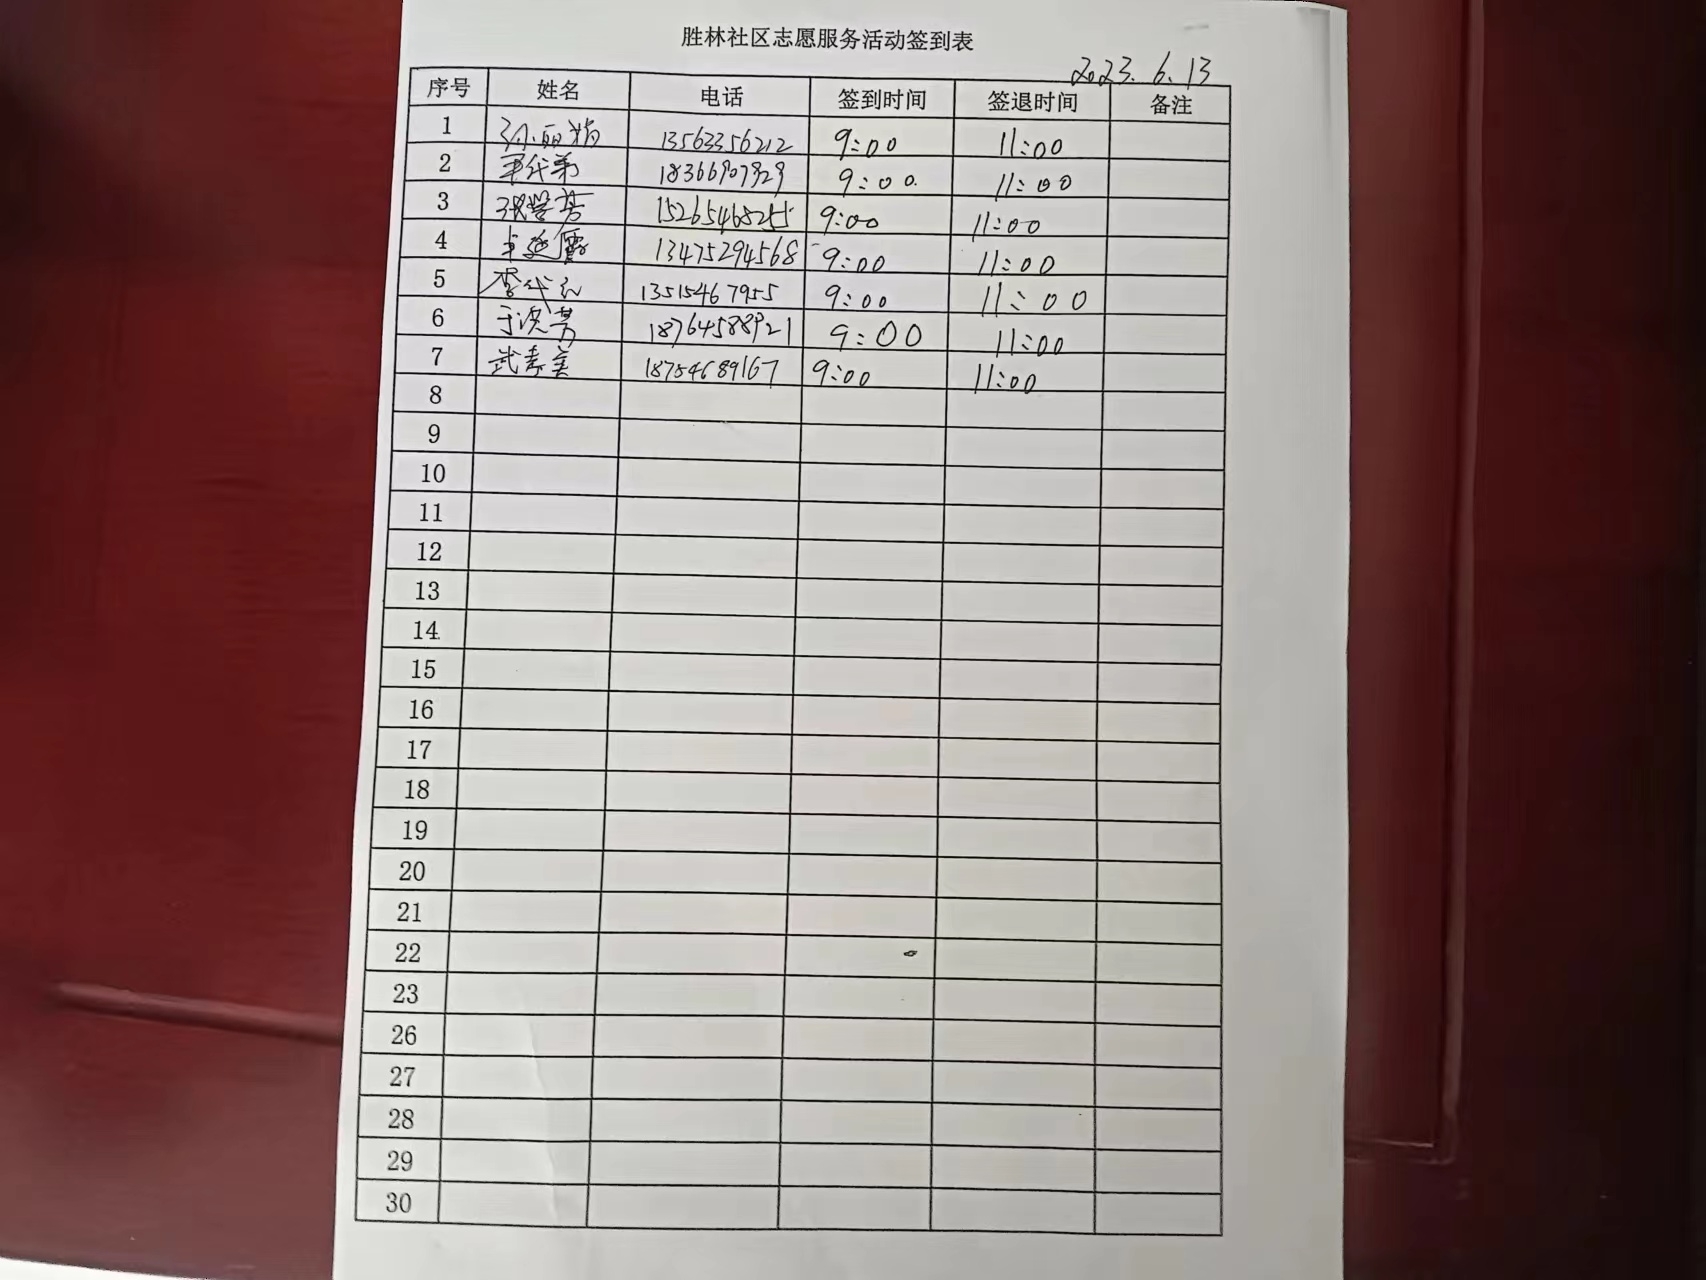 胜林社区志愿服务活动签到表
2023.6.13
序号 姓名 电话 签到时间 签退时间 备注
1 孙丽娟 13563356212 9:00 11:00
2 代弟 18366907929 9:00 11:00
3 张学芳 15265468255 9:00 11:00
4 延霞 13475294568 9:00 11:00
5 李代 13515467955 9:00 11:00
6 于洪芳 18764588921 9:00 11:00
7 武春美 18754689167 9:00 11:00
8
9
10
11
12
13
14
15
16
17
18
19
20
21
22
23
26
27
28
29
30